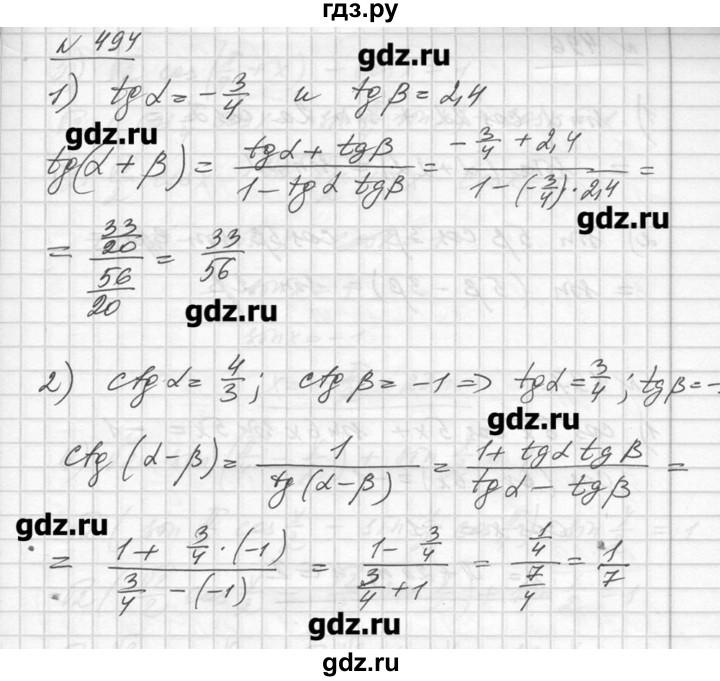 гдз.ру
N 494
gdz.ru
1) tgα = -3/4 и tgβ = 2,4
gdz.ru
tg(α + β) = (tgα + tgβ)/(1 - tgα tgβ) = (-3/4 + 2,4)/(1 - (-3/4) · 2,4) =
gdz.ru
= (33/20)/(56/20) = 33/56
gdz.ru
2) ctgα = 4/3; ctgβ = -1 => tgα = 3/4; tgβ = -
gdz.ru
ctg(α - β) = 1/(tg(α - β)) = (1 + tgα tgβ)/(tgα - tgβ) =
gdz.ru
= (1 + 3/4 · (-1))/(3/4 - (-1)) = (1 - 3/4)/(3/4 + 1) = (1/4)/(7/4) = 1/7
gdz.ru
gdz.ru